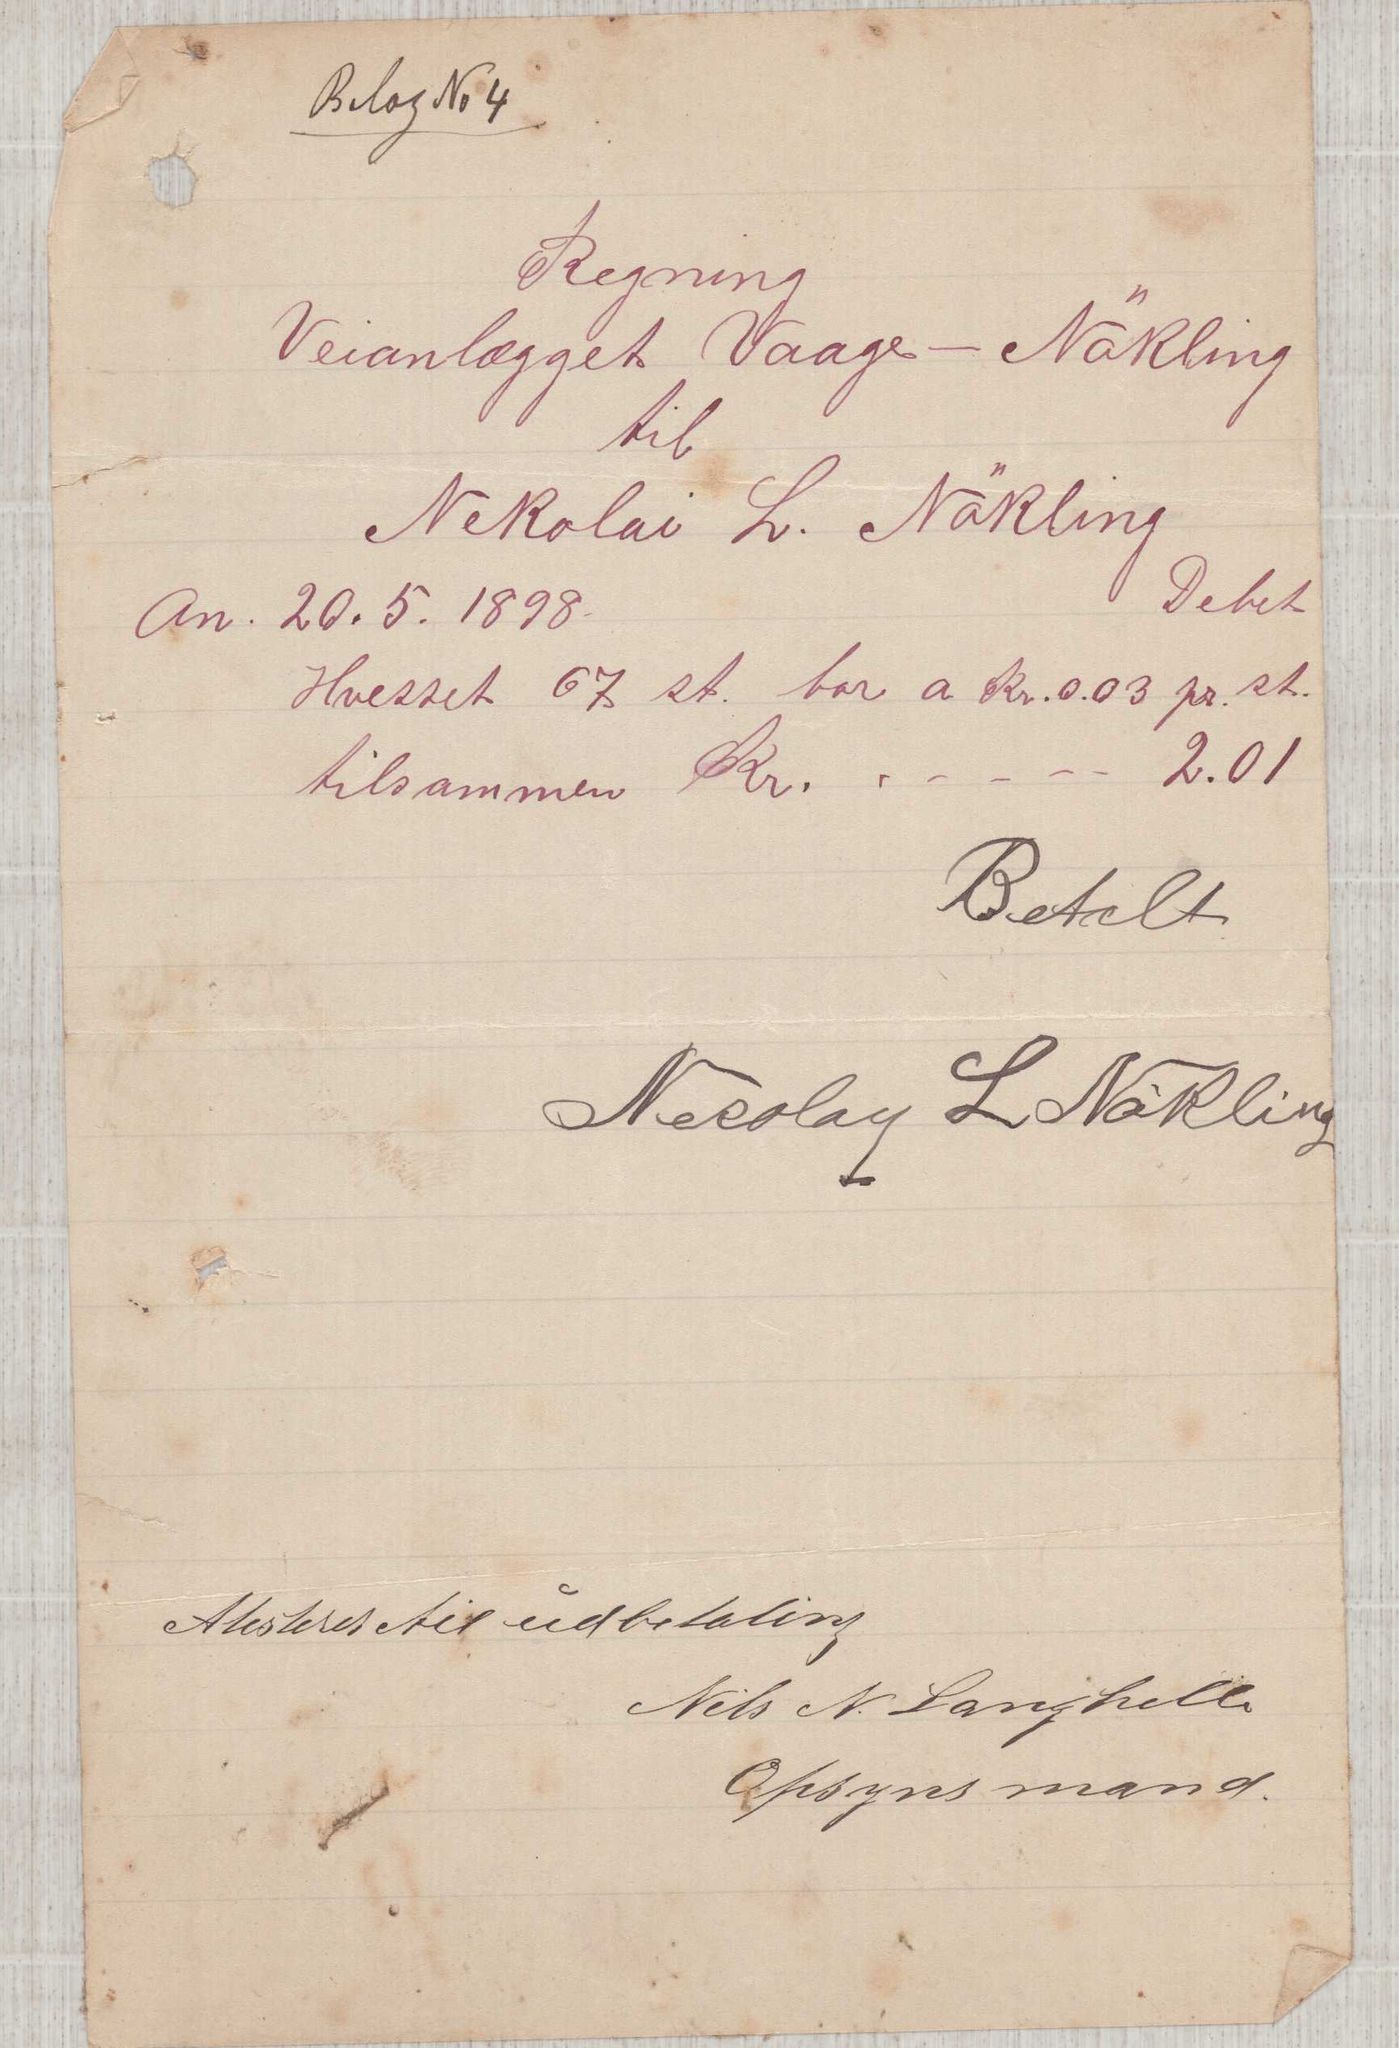 Bilag No 4
Regning
Veianlægget Vaage - Nökling
til
Nekolai L. Nökling
An. 20. 5. 1898. Debet
Hvesset 67 st. bor a Kr. 0.03 pr. st.
tilsammen Kr. . - - - - - 2.01
Betalt
Necolay L Nökling
Atesteres til ŭdbetaling
Nils N. Langhelle
Opsynsmand.